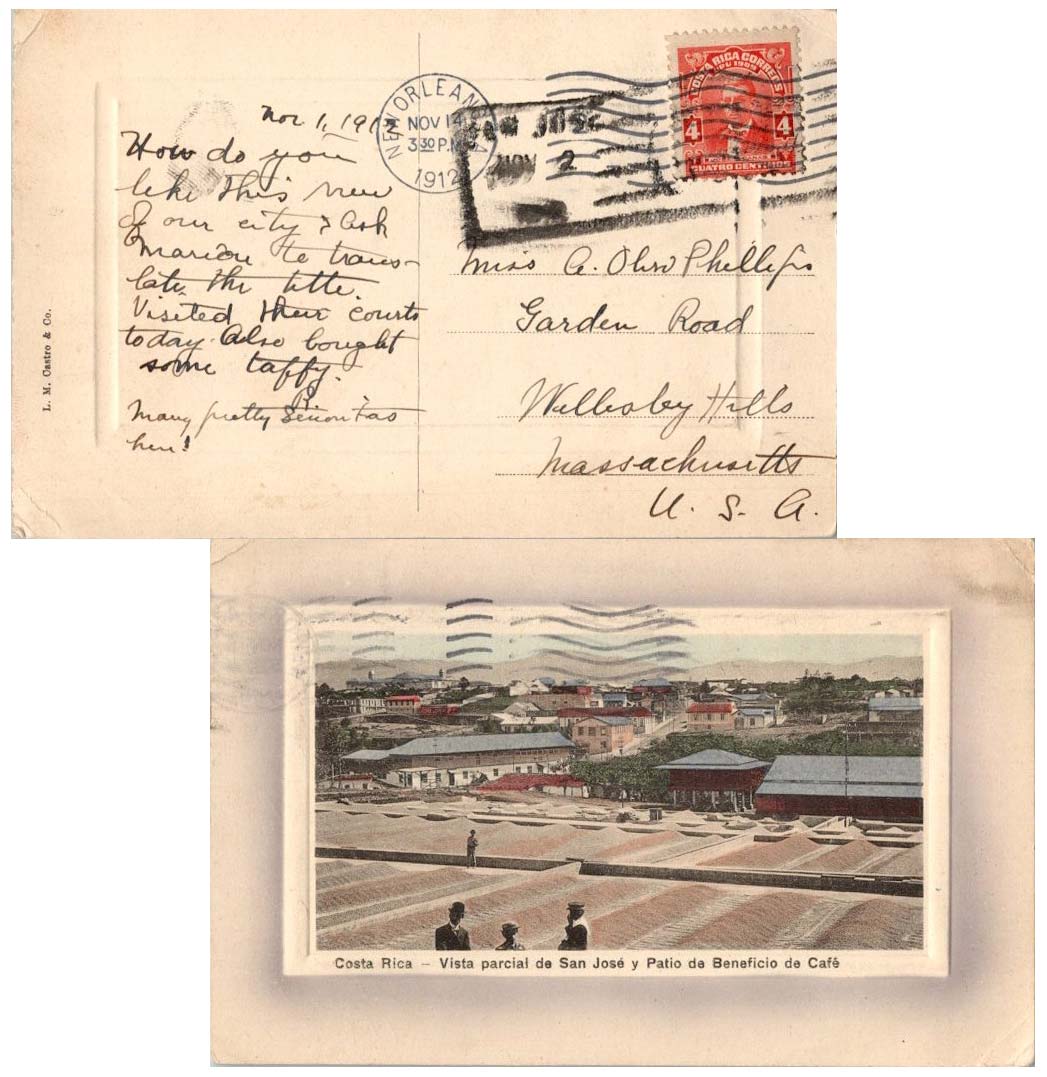 Nov. 1, 191
How do you
like this view
of our city? Ask
Marion to trans-
late the title.
Visited their courts
today. Also bought
some taffy.
Many pretty Senoritas
here!
L. M. Castro & Co.
NEW ORLEANS
NOV 14
3 30 P.M.
1912
JOSE
NOV 2
COSTA RICA CORREOS
UPU 1909
4 4
CUATRO CENTIMOS
Miss A. Olive Phillips
Garden Road
Wellesley Hills
Massachusetts
U. S. A.
Costa Rica – Vista parcial de San José y Patio de Beneficio de Café